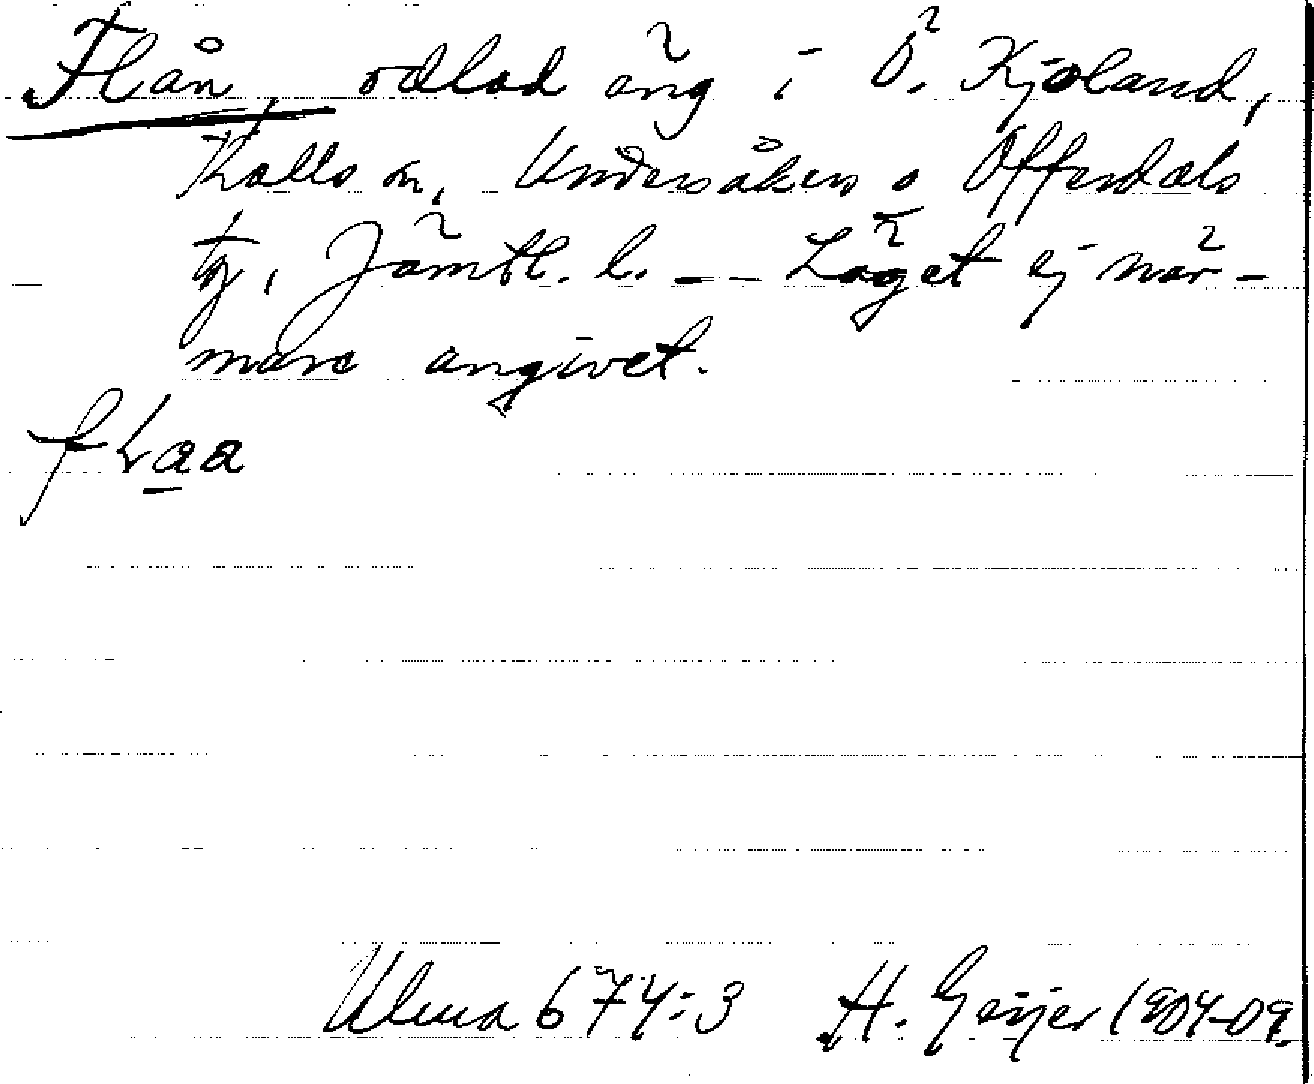 Flån, odlad äng i Ö. Kjoland,
Kalls sn, Undersåkers o Offerdals
tg, Jämtl. l. — — Läget ej när-
mare angivet.
flaa
Ulma 674:3 H. Geijer 1904-09.